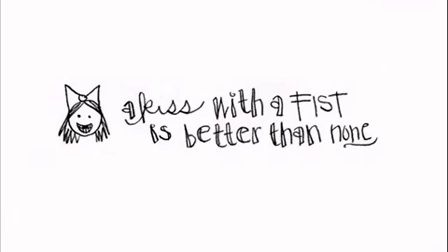 a kiss with a FIST
is better than none